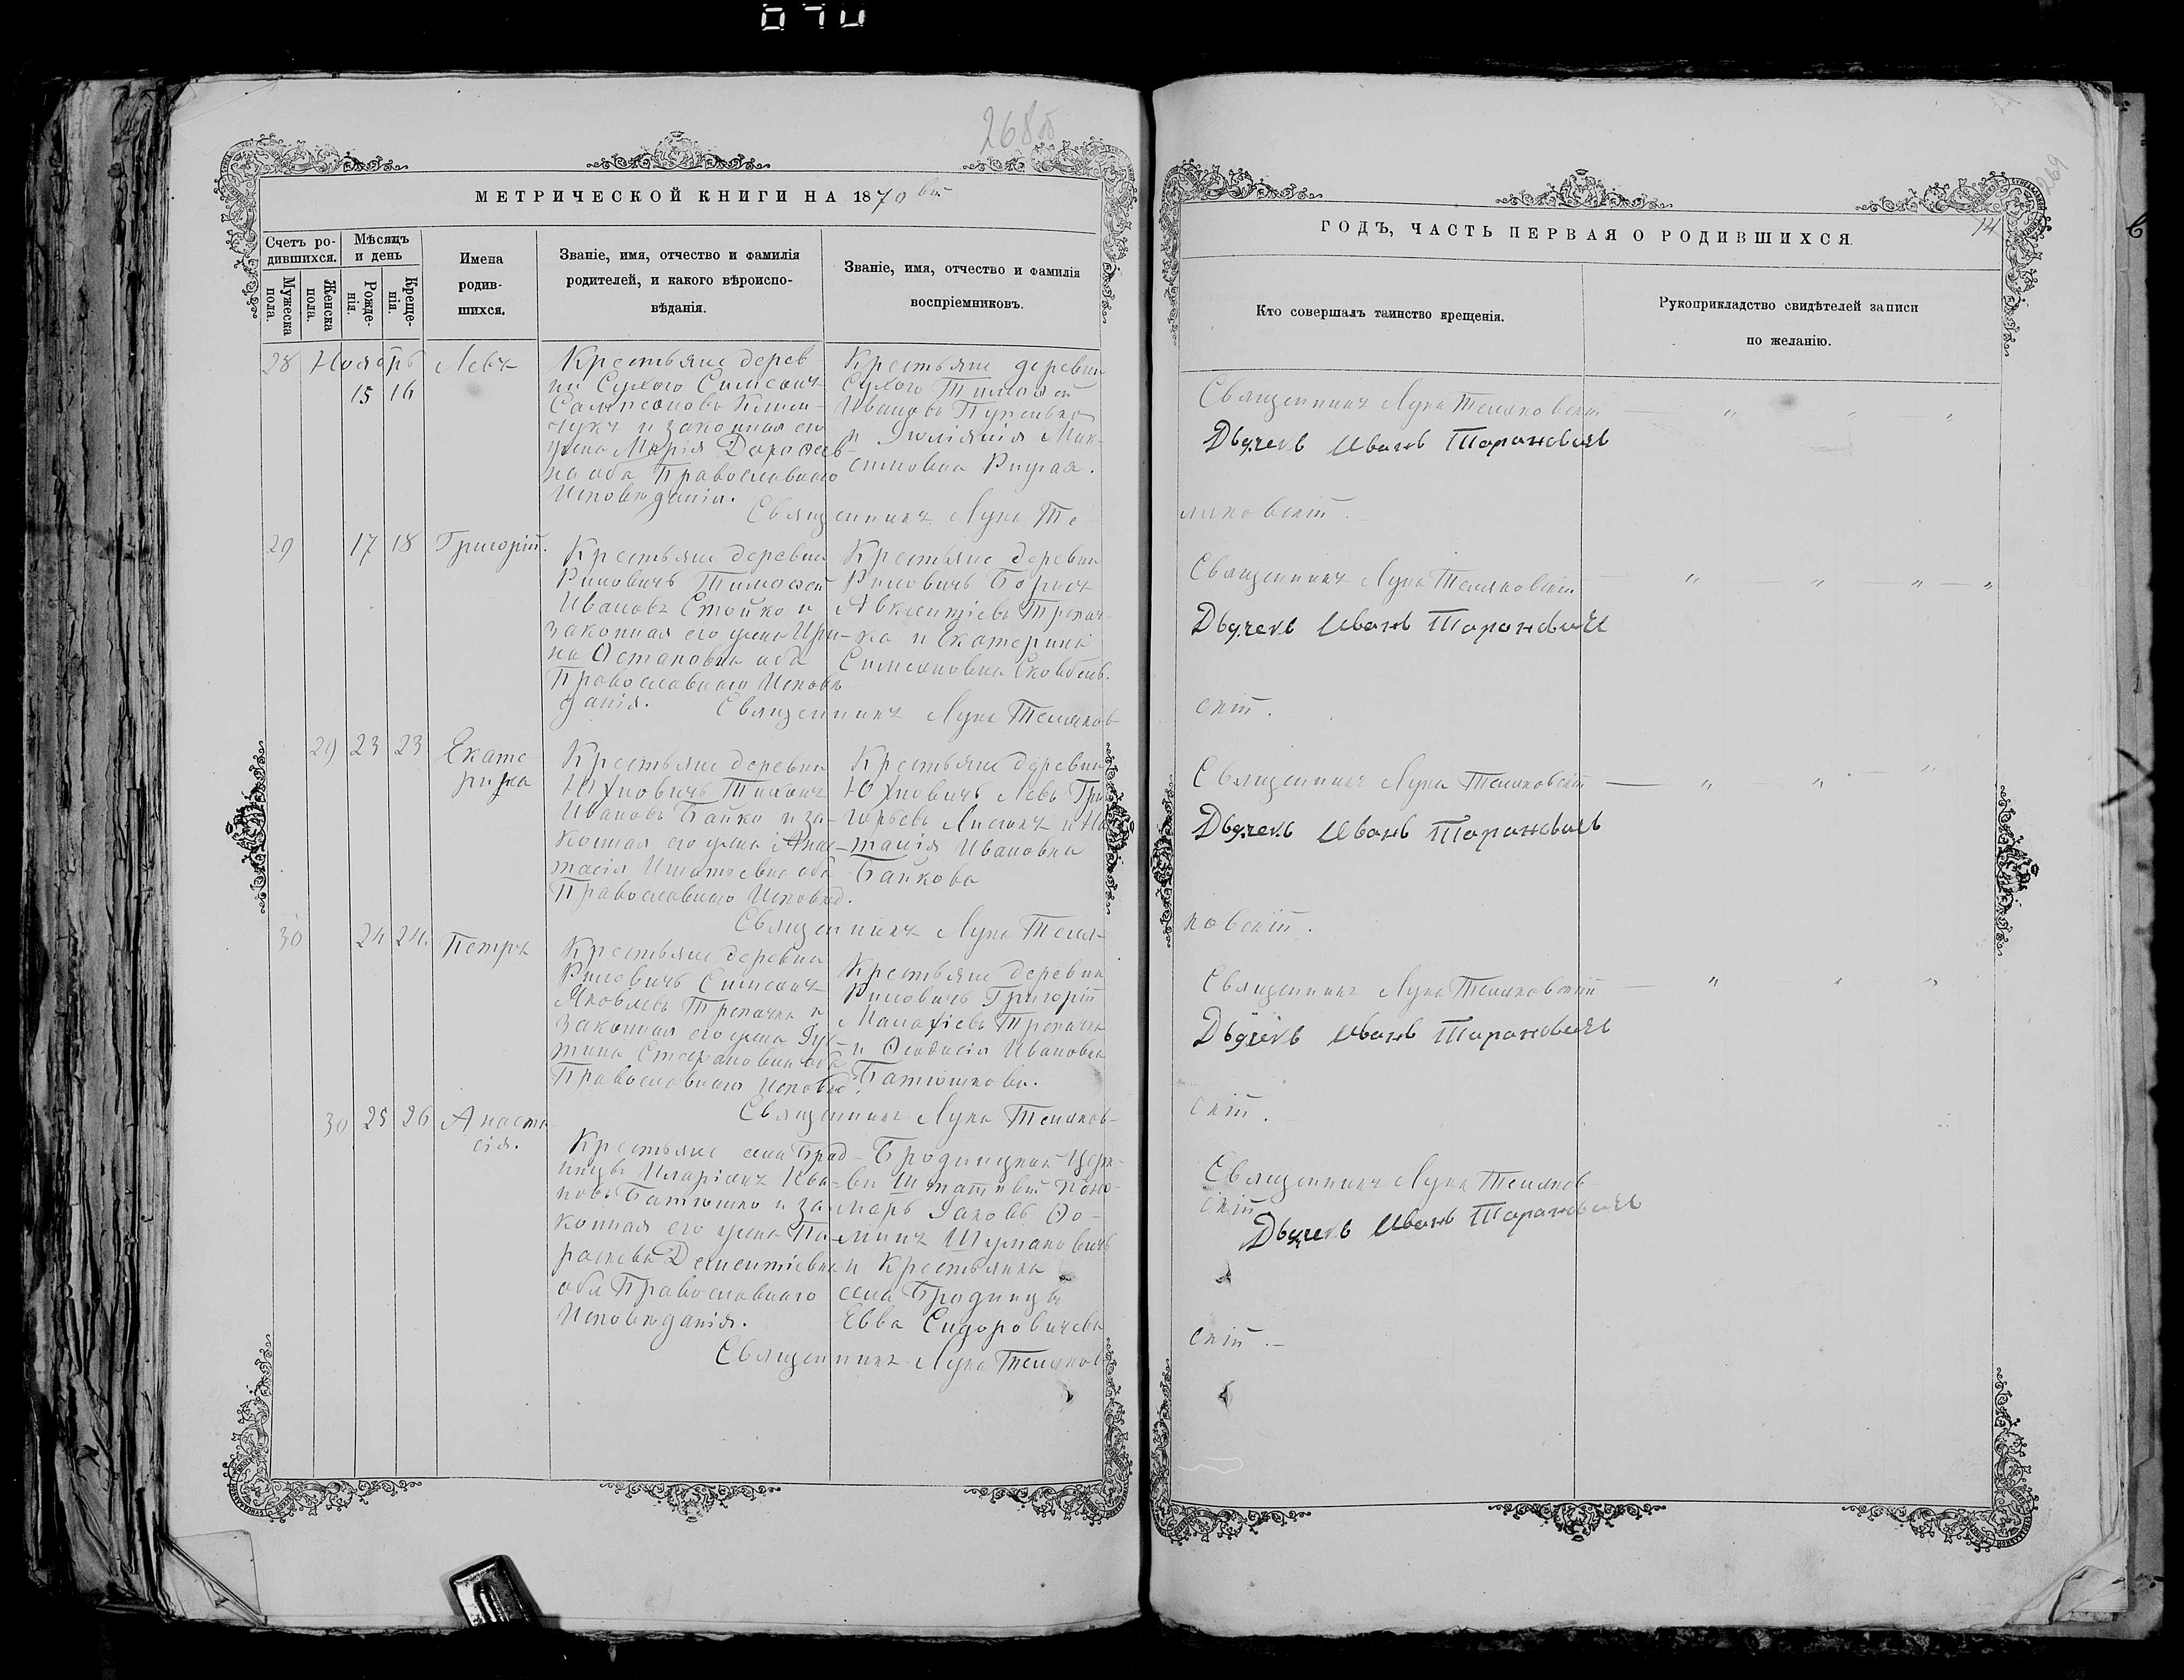 070
268 об
МЕТРИЧЕСКОЙ КНИГИ НА 1870 вый
Счетъ ро-
дившихся.
Мужеска пола.
Женска пола.
Мѣсяцъ
и день
Рожде-
нія.
Креще-
нія.
Имена
родив-
шихся.
Званіе, имя, отчество и фамилія
родителей, и какого вѣроиспо-
вѣданія.
Званіе, имя, отчество и фамилія
воспріемниковъ.
28 Ноябрь
15 16
Левъ
Крестьяне дерев
ни Сухого Симеонъ
Сампсоновъ Клим-
чукъ и законная его
жена Марія Дороѳеев-
на оба Православнаго
Исповѣданія.
Крестьяне деревни
Сухого Тимоѳей
Ивановъ
и Іюліанія Мак-
симовна
Священникъ Лука Те
29 17 18 Григорій.
Крестьяне деревни
Тимоѳей
Ивановъ Стойко и
законная его жена Ири-
на Остаповна оба
Православнаго Исповѣ
данія.
Крестьяне деревни
Борисъ
Авксентіевъ Трепач-
ка и Екатерина
Симеоновна
Священникъ Лука Теляков-
29 23 23 Екате-
рина
Крестьяне деревни
Юхновичъ Тихонъ
Ивановъ Байко и за-
конная его жена Анас-
тасія Игнатьевна оба
Православнаго Исповѣд.
Крестьяне деревни
Юхновичъ Левъ Гри
горьевъ и На
талія Ивановна
Байкова
Священникъ Лука Теля-
30 24 24. Петръ
Крестьяне деревни
Симеонъ
Яковлевъ Трепачка и
законная его жена Іус-
тина Стефановна оба
Православнаго Исповѣд.
Крестьяне деревни
Григорій
Малахіевъ Трепачка
и Ѳеодосія Ивановна
Батюшкова.
Священникъ Лука Теляков-
30 25 26 Анаста
сія.
Крестьяне села Брод-
ницы Иларіонъ Ива-
новъ Батюшко и за-
конная его жена Па-
раскева Дементіевна
оба Православнаго
Исповѣданія.
Бродницкой Церк-
ви Штатный Поно-
марь Іаковъ Ѳо-
минъ Шумановичъ
и Крестьянка
села Бродницы
Евва Сидоровичева
Священникъ Лука Теляков-
269
14
ГОДЪ, ЧАСТЬ ПЕРВАЯ О РОДИВШИХСЯ.
Кто совершалъ таинство крещенія.
Рукоприкладство свидѣтелей записи
по желанію.
Священникъ Лука Теляковскій — " " "
Дьячекъ Иванъ Тарановичъ
ляковскій.
Священникъ Лука Теляковскій — " " — " — "
Дьячекъ Иванъ Тарановичъ
скій.
Священникъ Лука Теляковскій — " — " — "
Дьячекъ Иванъ Тарановичъ
ковскій.
Священникъ Лука Теляковскій — " " "
Дьячекъ Иванъ Тарановичъ
скій.
Священникъ Лука Теляков-
скій
Дьячекъ Иванъ Тарановичъ
скій.-